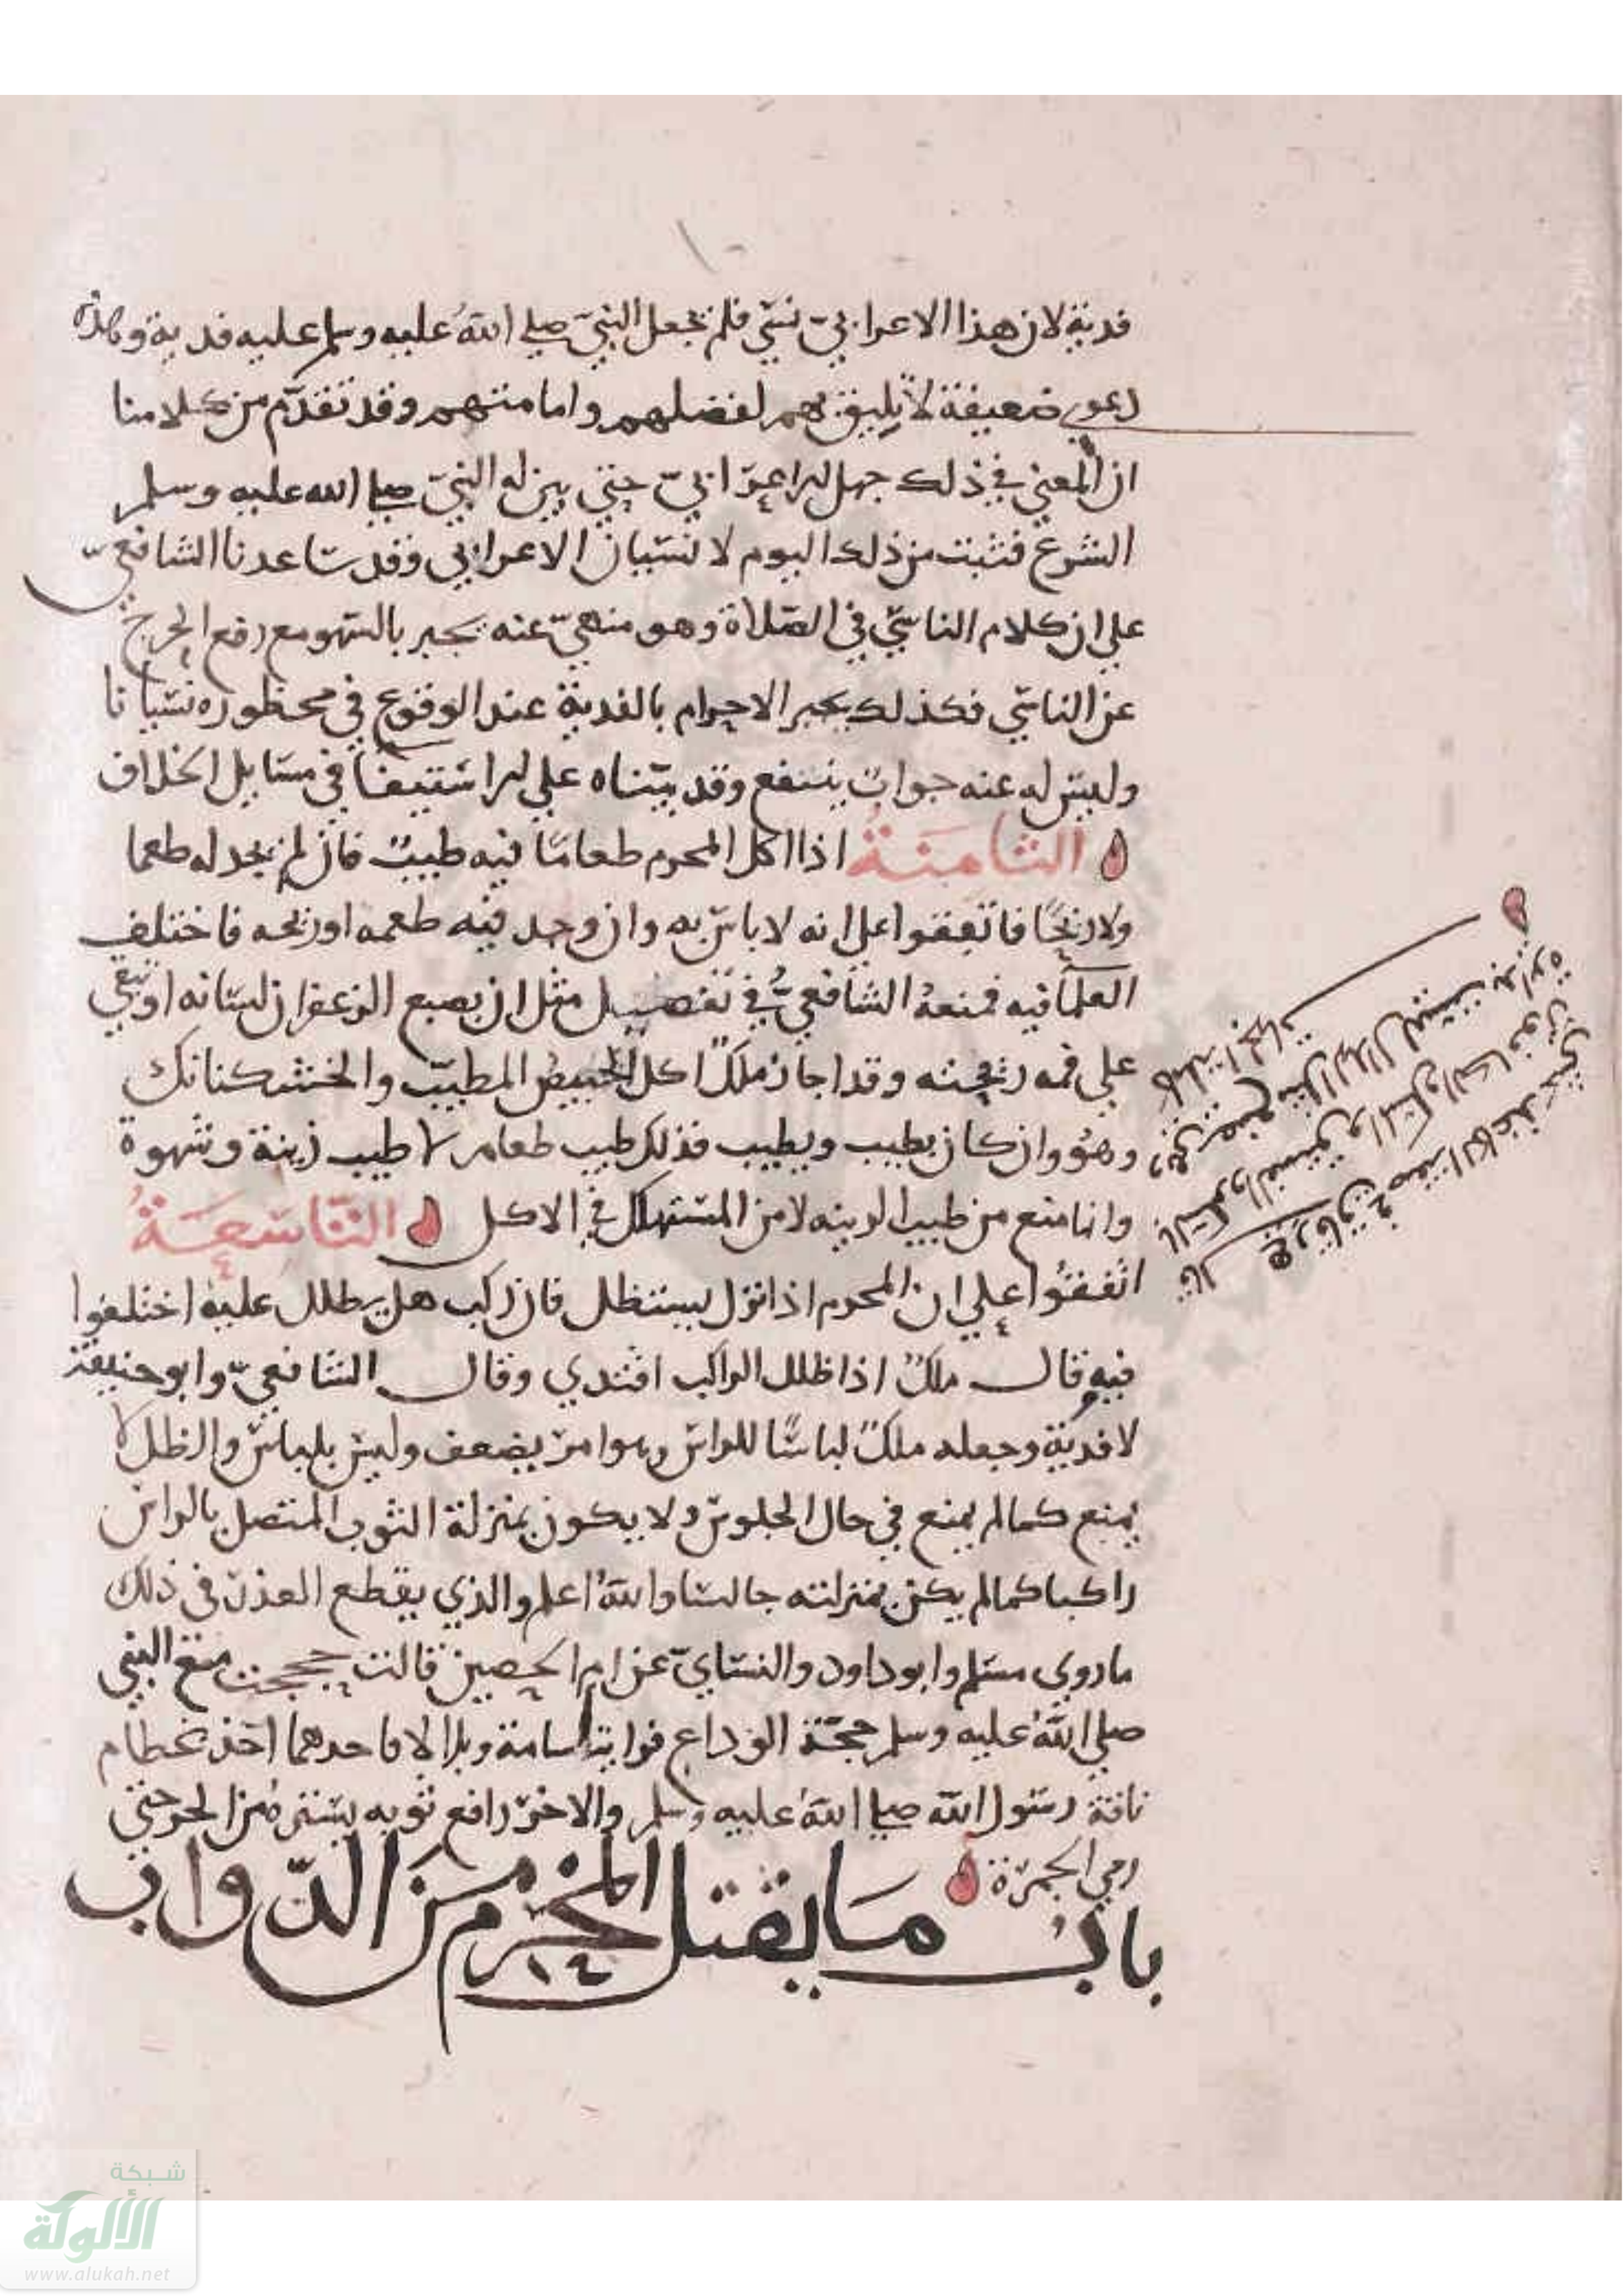 فدية لان هذا الاعرابيّ نسي فلم يجعل النبيّ صلى اللهُ عليه وسلم عليه فدية وهذه
دعوى ضعيفة لا يليق بهم لفضلهم وامامتهم وقد تقدّم من كلامنا
ان المعنى في ذلك جهل الاعرابيّ حتى بين له النبيّ صلى الله عليه وسلم
الشرع فثبت من ذلك اليوم لا نسيان الاعرابي وقد ساعدنا الشافعيّ
على ان كلام الناسي في الصّلاة وهو منهيّ عنه يجبر بالسّهو مع رفع الحرج
عن الناسي فكذلك يجبر الاحرام بالفدية عند الوقوع في محظوره نسيانا
وليس له عنه جوابٌ ينفع وقد بيّناه على الاستيفا في مسايل الخلاف
الثامنةُ اذا اكل المحرم طعامًا فيه طيبٌ فان لم يجد له طعما
ولا ريحًا فاتفقوا على انه لا باس به وان وجد فيه طعمه او ريحه فاختلف
العلما فيه فمنعهُ الشافعيُّ في تفصيل مثل ان يصبع الزعفران لسانه او تبقى
على فمه ريحته وقد اجاز ملكٌ اكل الخبيص المطيّب والخشكنانك
وهو وان كان يطيب ويطيب فذلك طيب طعام لا طيب زينة وشهوة
وانما منع من طيب الزينه لا من المستهلك في الاكل التّاسعةُ
اتفقوا على ان المحرم اذا نزل يستظل فان ركب هل يظلل عليه اختلفوا
فيه قال ملكٌ اذا ظلل الراكب افتدي وقال الشافعيّ وابو حنيفة
لا فدية وجعله ملكٌ لباسًا للراس وهو امر يضعف وليس بلباس والظل لا
يمنع كما لم يمنع في حال الجلوس ولا يكون بمنزلة الثوب المتصل بالراس
راكبا كما لم يكن بمنزلته جالسا واللهُ اعلم والذي يقطع العذر في ذلك
ما روي مسلم وابو داود والنسايّ عن ام الحصين قالت حججت مع النبي
صلى اللهُ عليه وسلم حجّة الوداع فرايت اسامة وبلالا فاحدهما اخذ بخطام
ناقة رسول الله صلى اللهُ عليه وسلم والاخر رافع ثوبه يستره من الحر حتى
رمي الجمرة
بابُ ما يقتل المحرم من الدّواب
شبكة
الألوكة
www.alukah.net